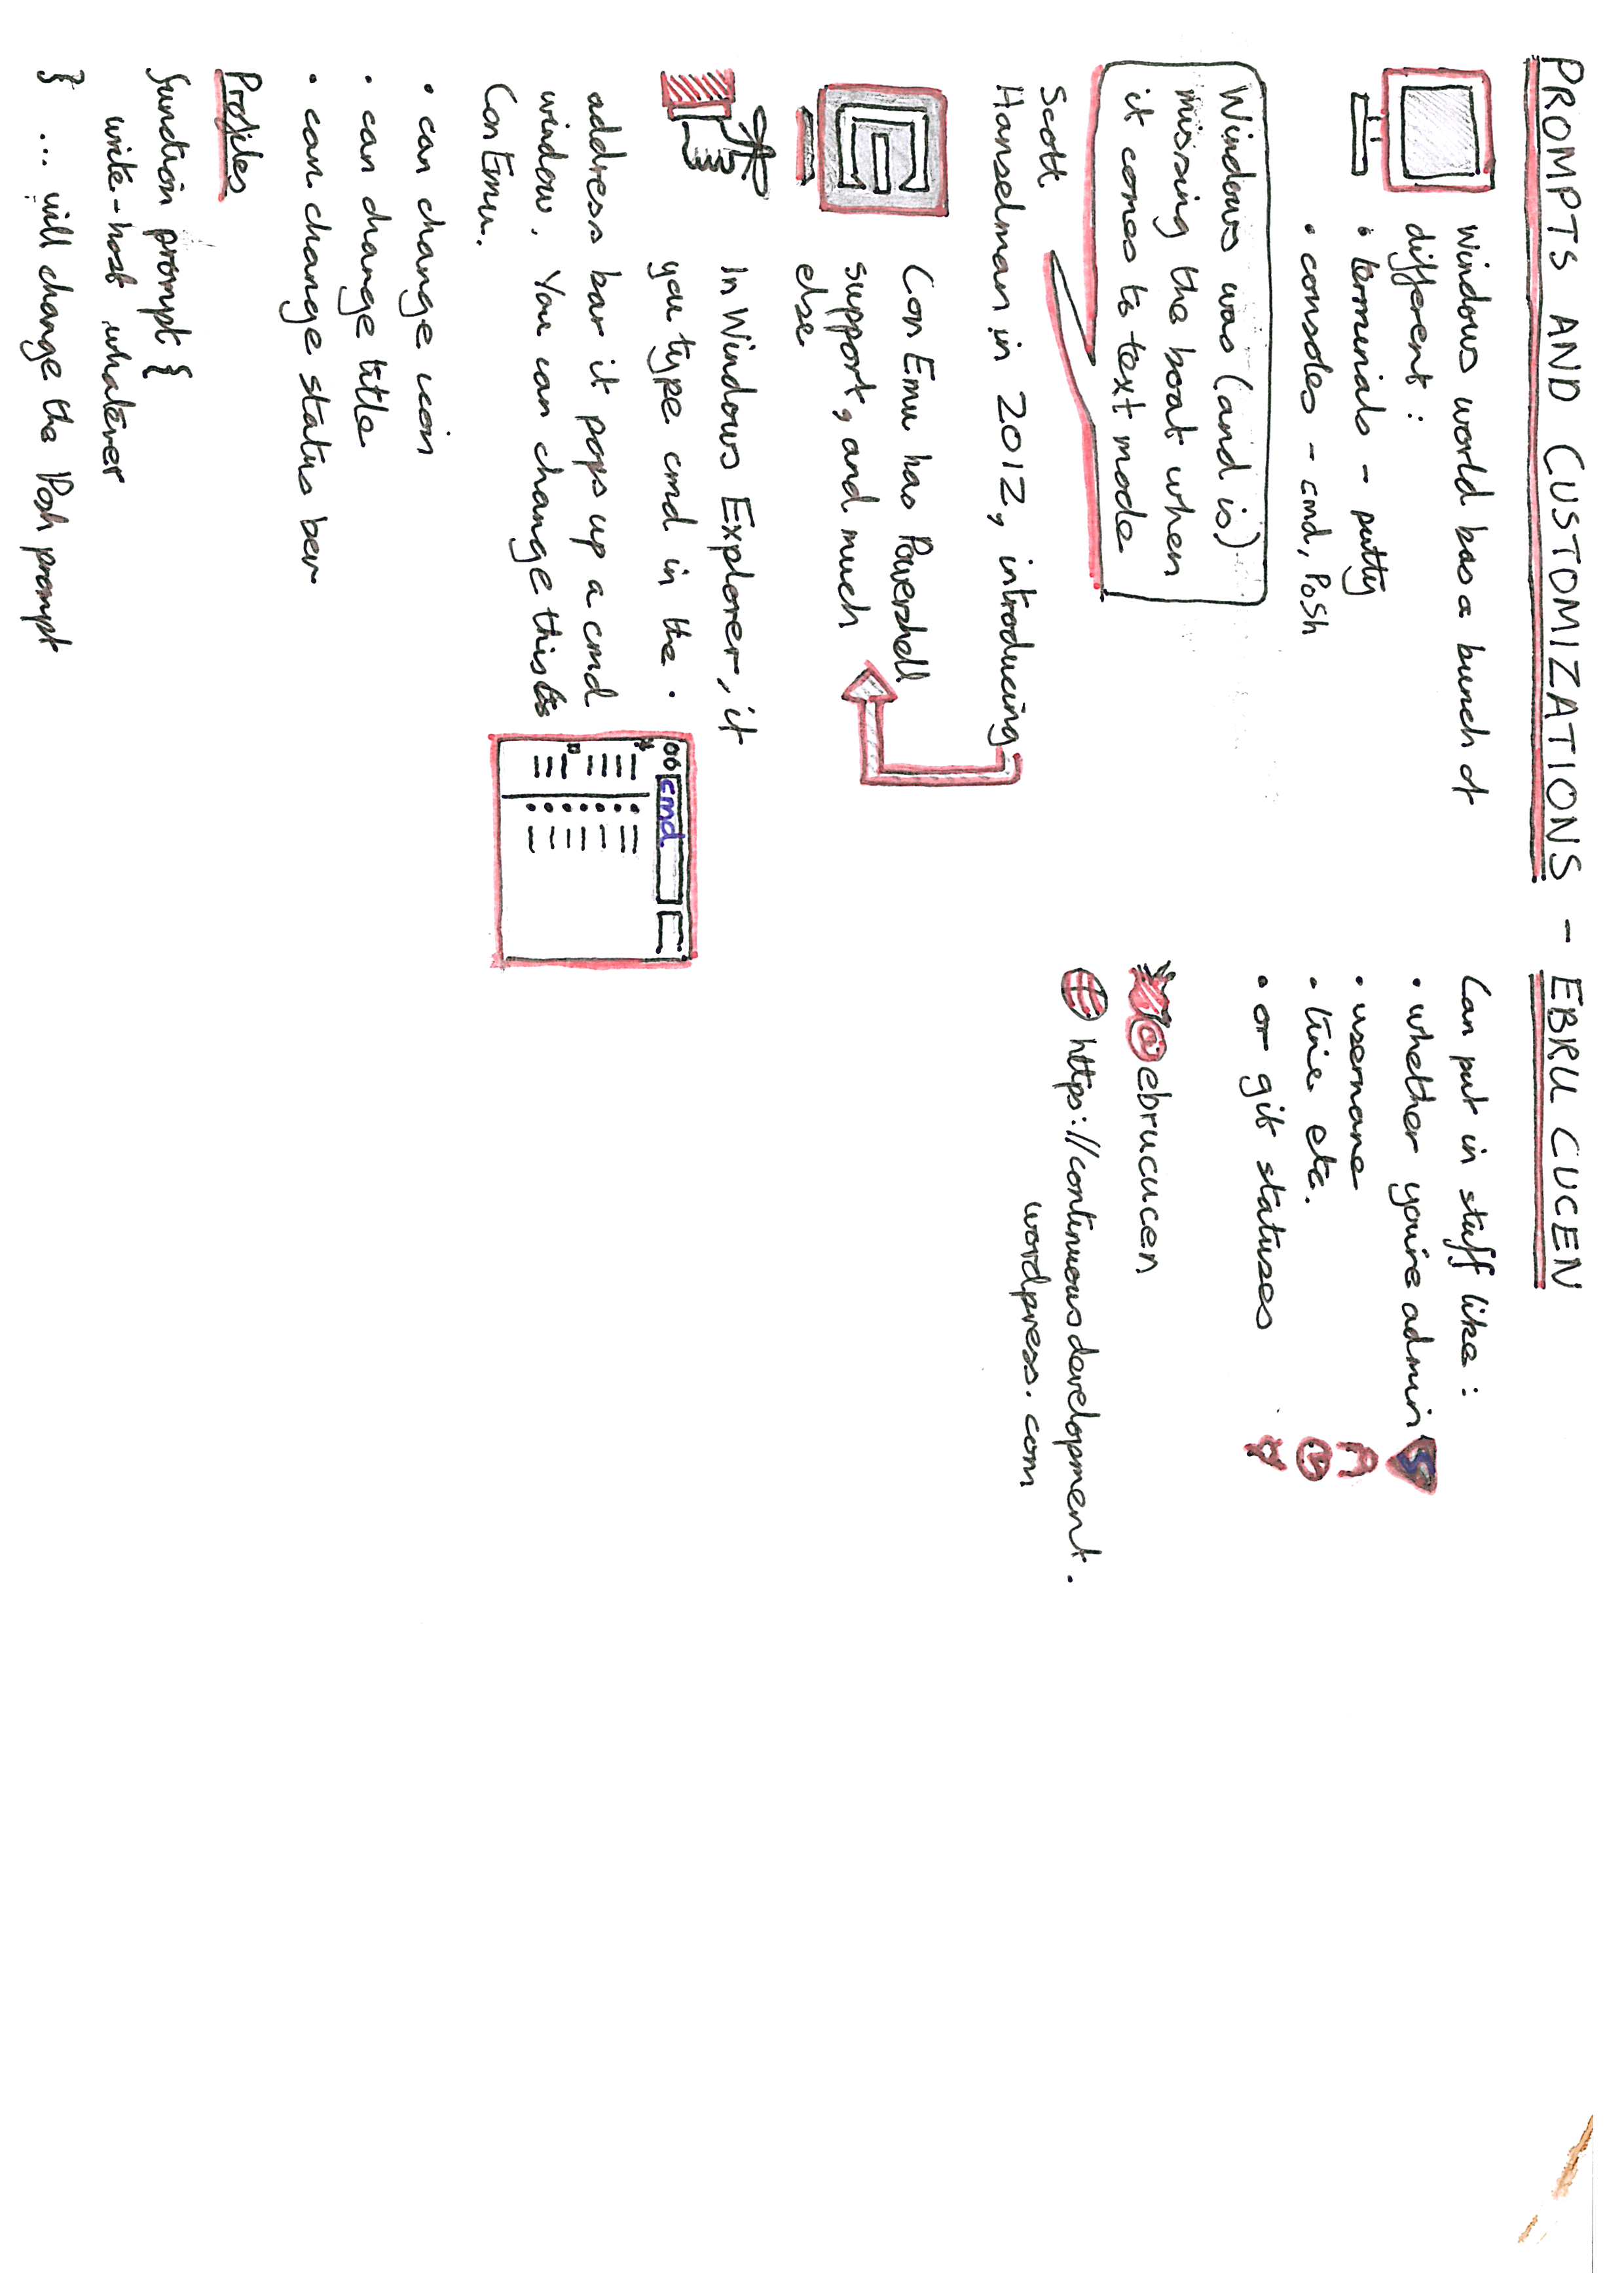 PROMPTS AND CUSTOMIZATIONS - EBRU CUCEN
Windows world has a bunch of
different :
• terminals - putty
• consoles - cmd, PoSh
Windows was (and is)
missing the boat when
it comes to text mode
Scott
Hanselman in 2012, introducing
ConEmu has Powershell
support, and much
else
In Windows Explorer, if
you type cmd in the
cmd
address bar it pops up a cmd
window. You can change this to
ConEmu.
• can change icon
• can change title
• can change status bar
Profiles
function prompt {
write-host whatever
} ... will change the Posh prompt
Can put in stuff like :
• whether you're admin S
• username
• time etc.
• or git statuses
@ebrucucen
https://continuousdevelopment.
wordpress.com